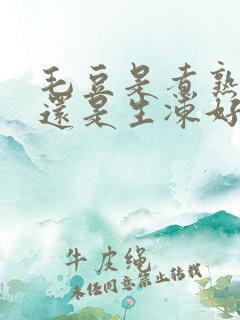 毛豆是煮熟
還是生凍好
牛皮绳
未经同意禁止转载